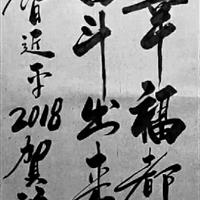 幸福都
奋斗出来
習近平2018賀